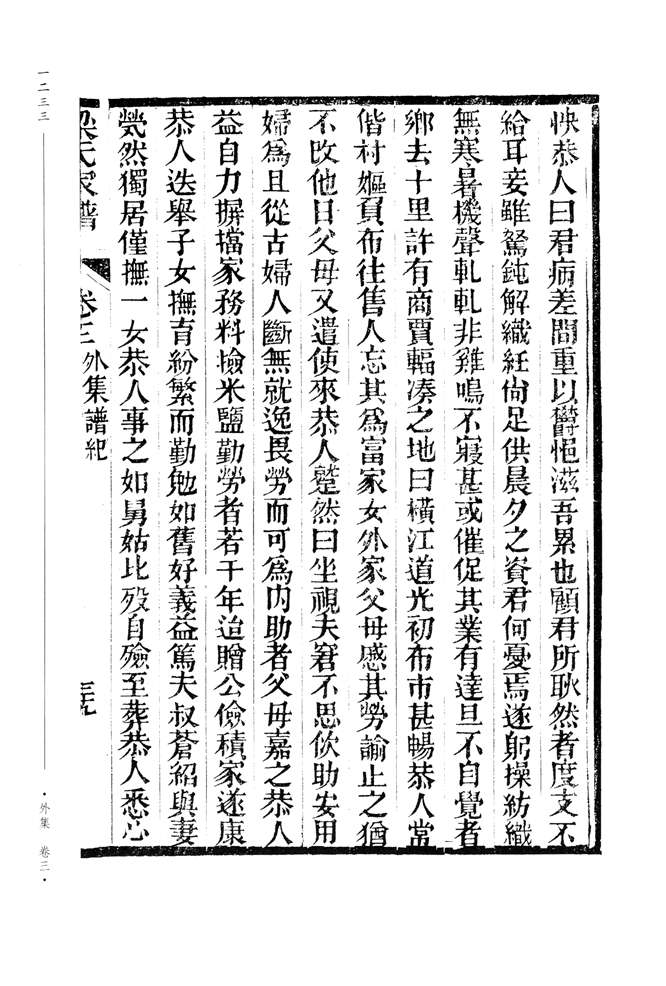 怏恭人曰君病差間重以鬱悒滋吾累也顧君所耿然者度支不
給耳妾雖駑鈍解織紝尙足供晨夕之資君何憂焉遂躬操紡織
無寒暑機聲軋軋非雞鳴不寢甚或催促其業有達旦不自覺者
鄉去十里許有商賈輻凑之地曰橫江道光初布市甚暢恭人常
偕村嫗負布往售人忘其爲富家女外家父母感其勞諭止之猶
不改他日父母又遣使來恭人蹵然曰坐視夫窘不思佽助安用
婦爲且從古婦人斷無就逸畏勞而可爲内助者父毋嘉之恭人
益自力摒擋家務料撿米鹽勤勞者若干年迨贈公儉積家遂康
恭人迭舉子女撫育紛繁而勤勉如舊好義益篤夫叔蒼紹與妻
煢然獨居僅撫一女恭人事之如舅姑比歿自殮至葬恭人悉心
梁氏家譜 卷三 外集譜紀 三九
一二三三
·外集 卷三·